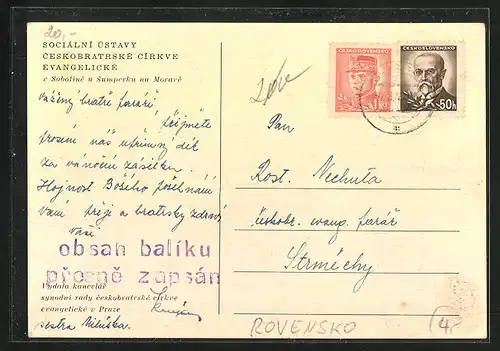 20,-
SOCIÁLNÍ ÚSTAVY
ČESKOBRATRSKÉ CÍRKVE
EVANGELICKÉ
v Sobotíně u Šumperku na Moravě
Vážený bratře faráři,
přijměte
prosím náš upřímný dík
za vánoční zásilku.
Hojnost Božího požehnání
Vám přeje a bratrsky zdraví
Vaši
obsah balíku
přesně zapsán
Vydala kancelář
synodní rady českobratrské církve
evangelické v Praze
sestra Miluška.
ČESKOSLOVENSKO
1 Kčs
ČESKOSLOVENSKO
50h
Pan
Rost. Nechuta
českobr. evang. farář
Strměchy
ROVENSKO
4,-